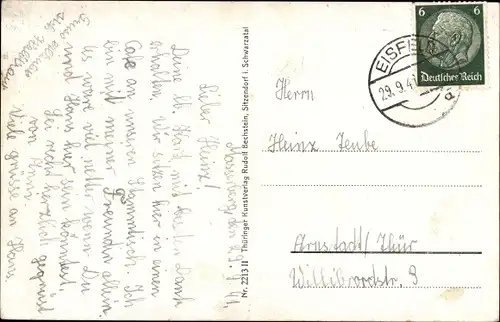 Masserberg, den 29.9.41.
Lieber Heinz!
Deine lb. Karte mit besten Dank
erhalten. Wir sitzen hier in einem
Cafe an unserem Stammtisch. Ich
bin mit meiner Freundin allein.
Es wäre viel netter wenn Du
und Hans hier sein könntest.
Sei recht herzlich gegrüsst
von Deiner
Viel Grüsse an Hans
Nr. 2213 II Thüringer Kunstverlag Rudolf Bechstein, Sitzendorf i. Schwarzatal
6 6
Deutsches Reich
EISFELD
29.9.41
a
Herrn
Heinz Teube
Arnstadt/Thür
Willibrordstr. 9